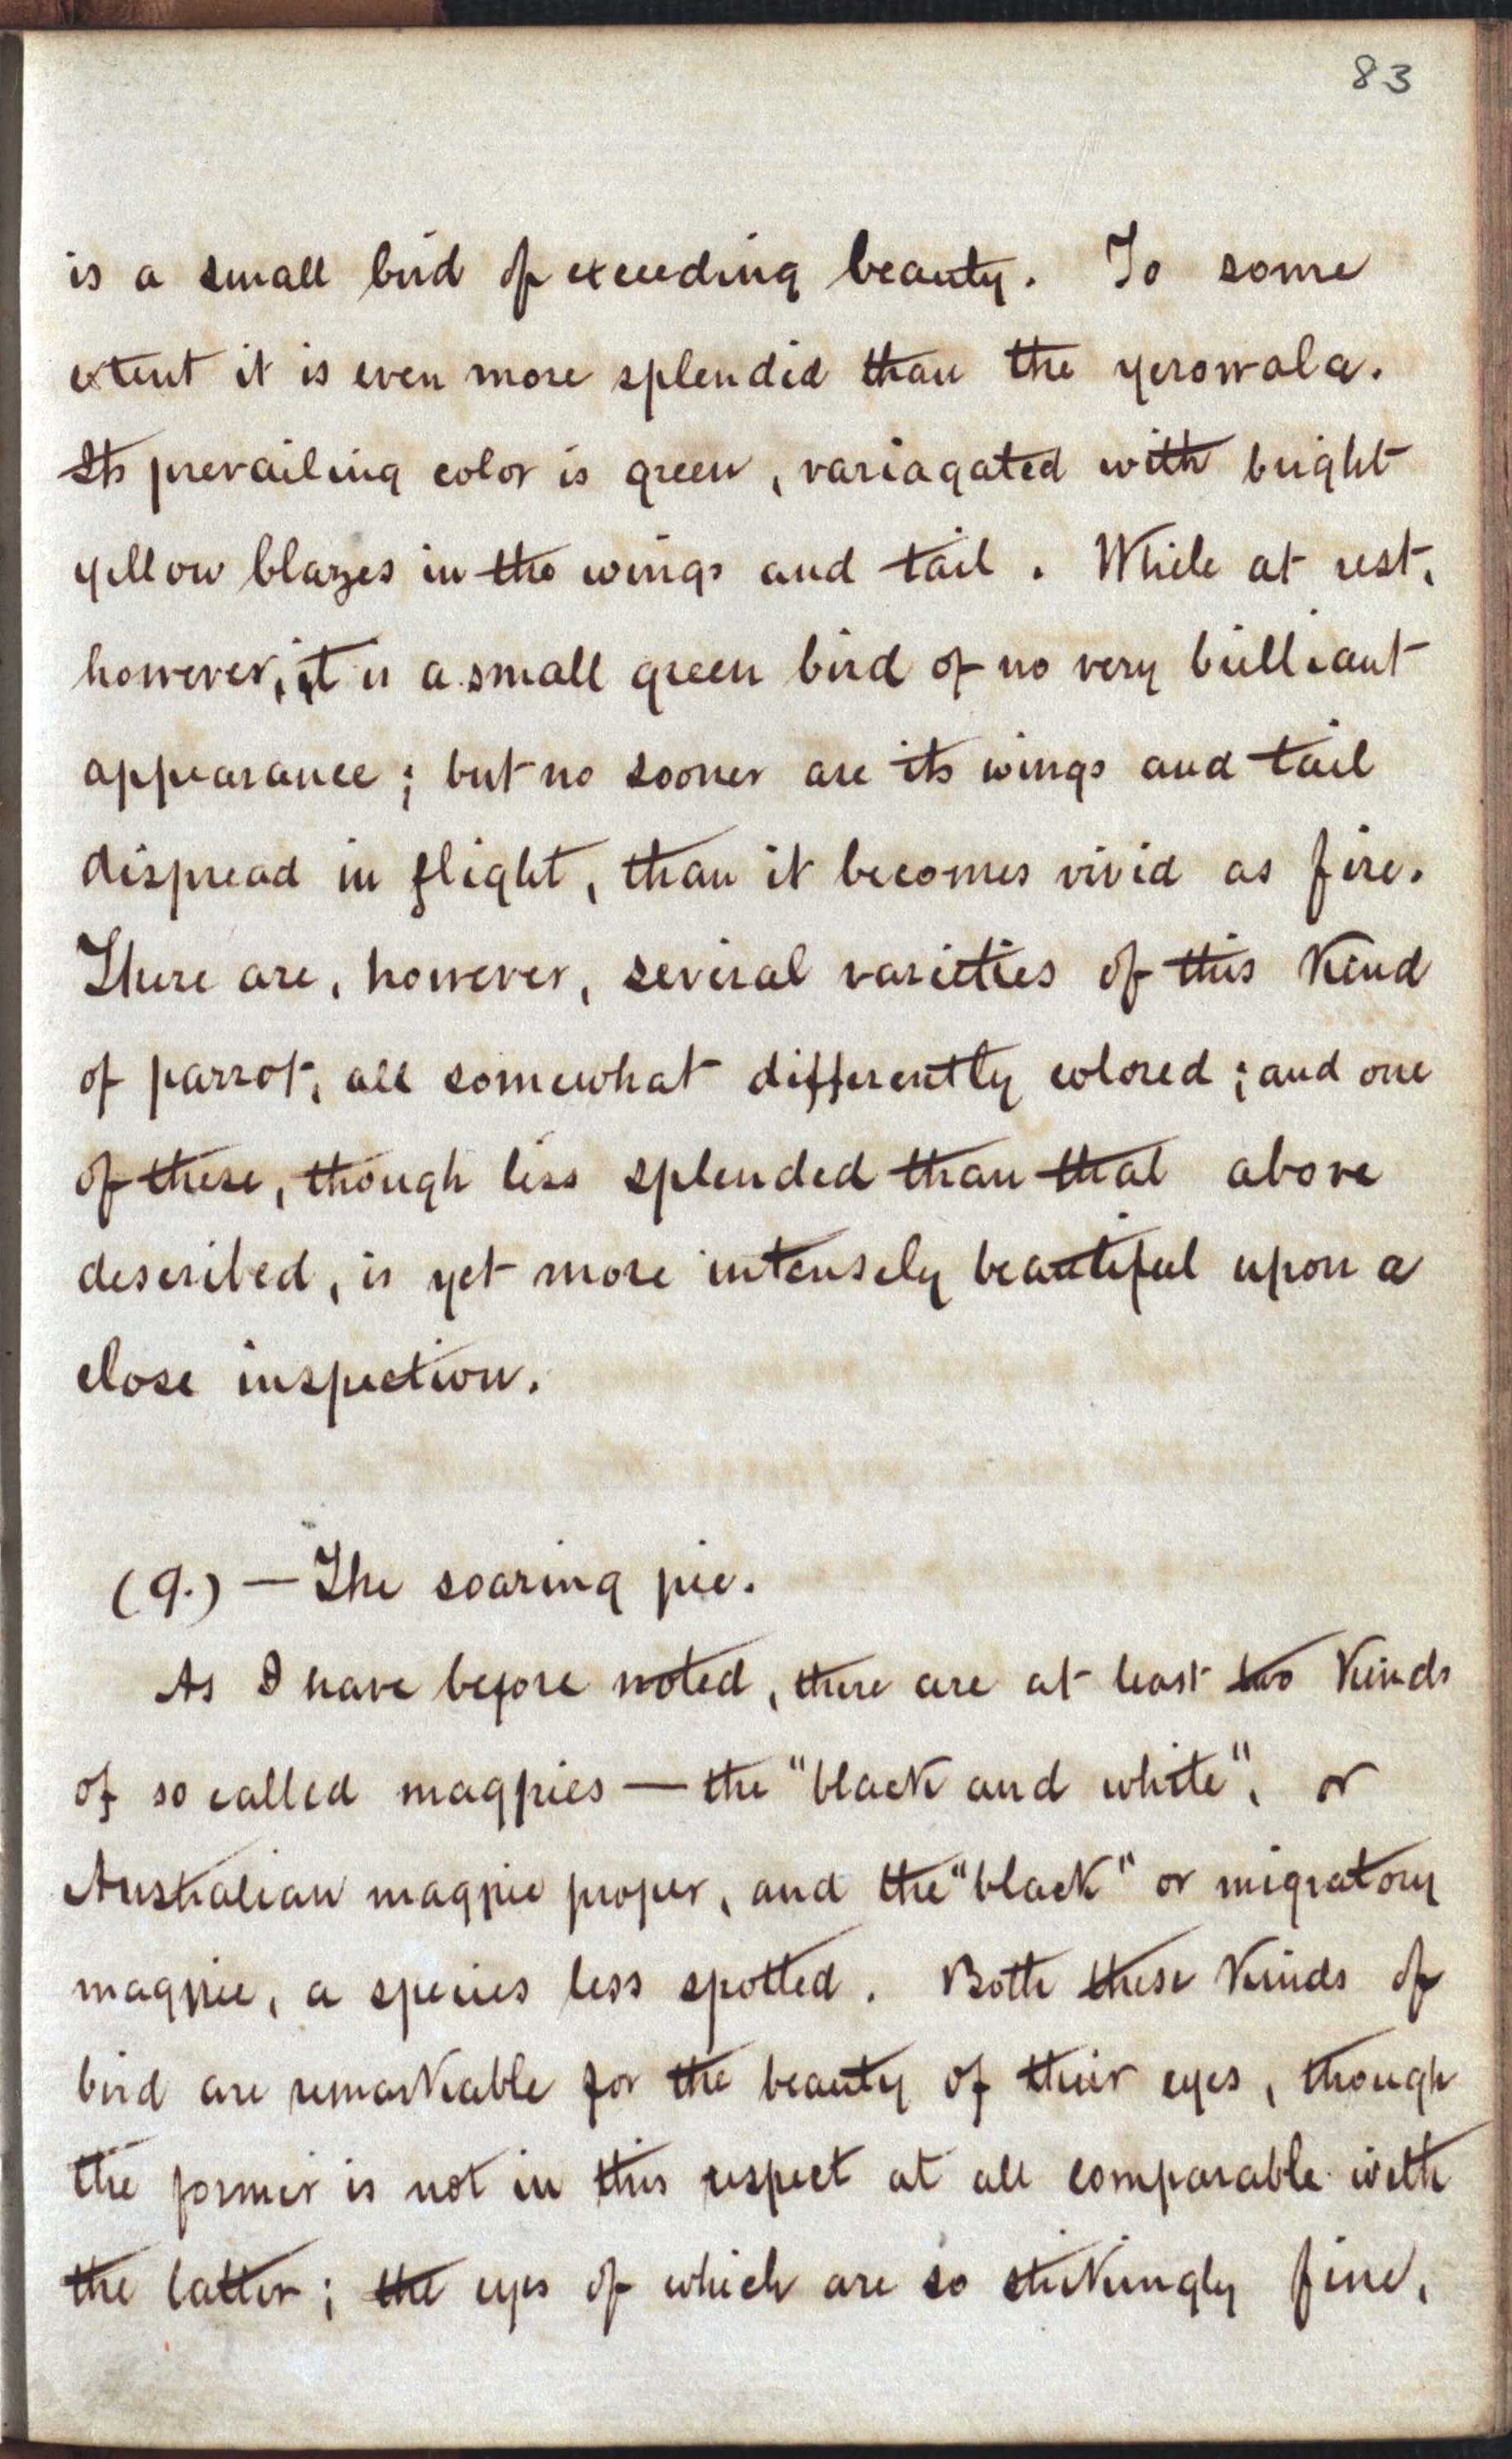 83
is a small bird of exceeding beauty. To some
extent it is even more splendid than the yerowala.
Its prevailing color is green, variagated with bright
yellow blazes in the wings and tail. While at rest,
however, it is a small green bird of no very brilliant
appearance; but no sooner are its wings and tail
dispread in flight, than it becomes vivid as fire.
There are, however, several varieties of this kind
of parrot, all somewhat differently colored; and one
of these, though less splended than that above
described, is yet more intensely beautiful upon a
close inspection.
(9.) — The soaring pie.
As I have before noted, there are at least two kinds
of so called magpies — the "black and white", or
Australian magpie proper, and the "black" or migratory
magpie, a species less spotted. Both these kinds of
bird are remarkable for the beauty of their eyes, though
the former is not in this respect at all comparable with
the latter; the eyes of which are so strikingly fine,